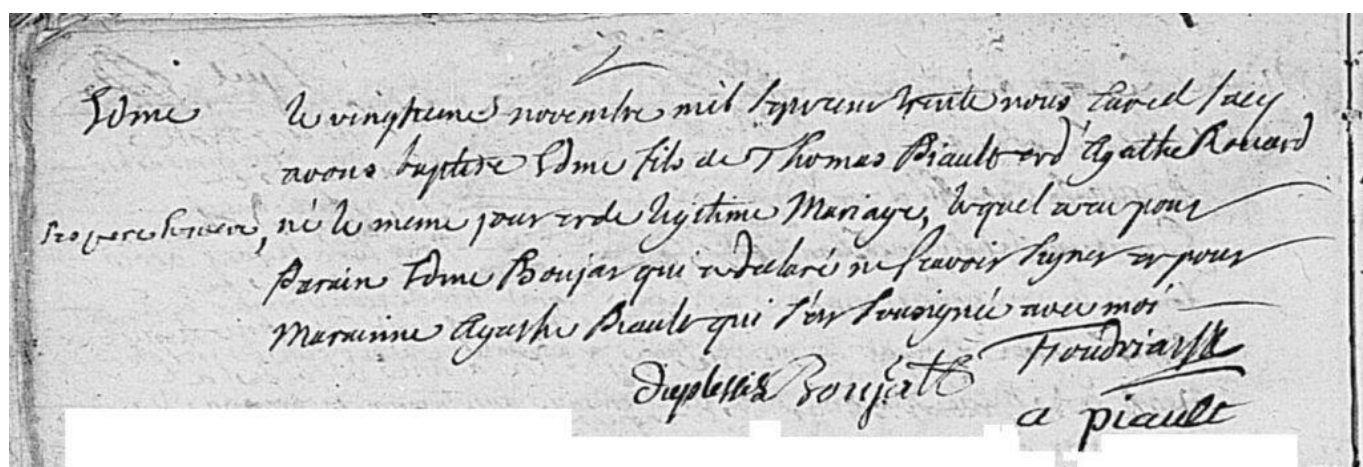 Edme
le vingtieme novembre mil sept cent trente nous curé d'Jacy
avons baptisé Edme fils de Thomas Piault et d'Agathe Rouard
ses pere et mere, né le meme jour et de legitime Mariage, lequel a eu pour
Parain Edme Boujat qui a declaré ne scavoir signer et pour
Marainne Agathe Piault qui s'est sousignée avec moi
duplessis Boujatt
a piault